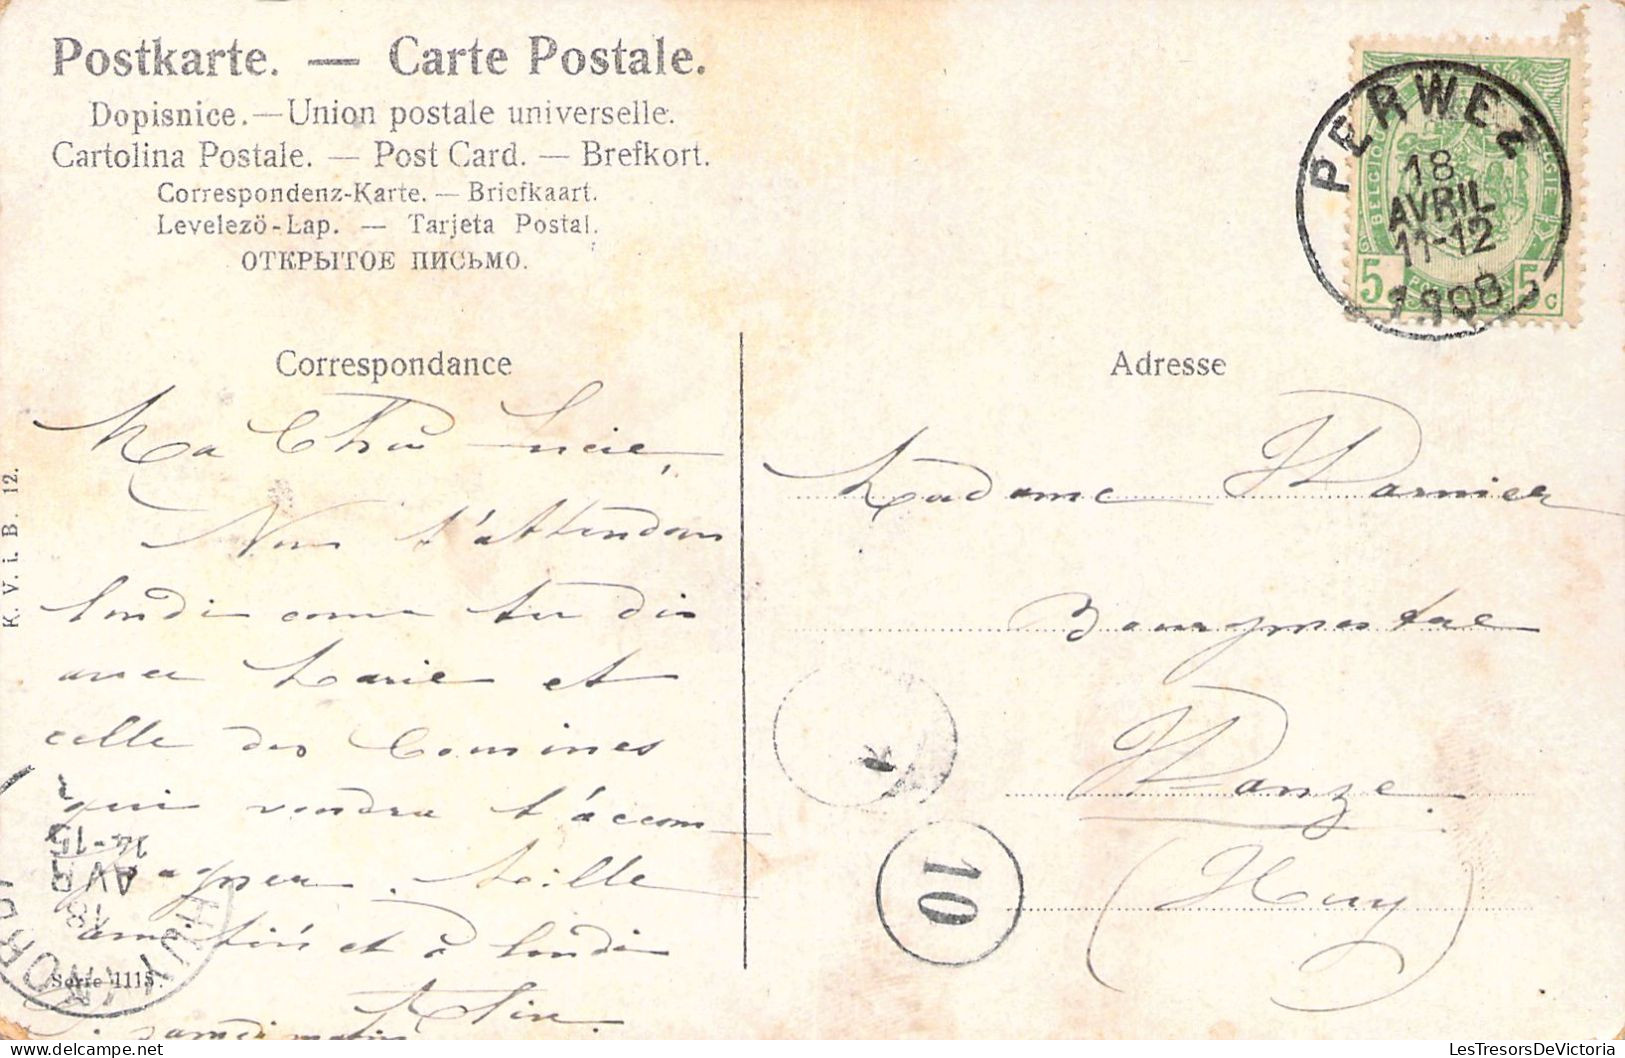 Postkarte. — Carte Postale.
Dopisnice. — Union postale universelle.
Cartolina Postale. — Post Card. — Brefkort.
Correspondenz-Karte. — Briefkaart.
Levelezö-Lap. — Tarjeta Postal.
ОТКРЫТОЕ ПИСЬМО.
PERWEZ
18
AVRIL
11-12
1908
BELGIQUE
5 5 c
Correspondance
Ma Lucie,
Nous t'attendons
lundi comme tu dis
avec Marie et
celle des Cousines
qui voudra t'accom
pagner. Mille
amitiés et à lundi
samedi matin
K. V. i. B. 12.
Serie 1115.
HUY (NORD)
18
AVR
14-15
Adresse
Madame Warnier
Bourgmestre
Wanze.
(Huy)
10
LesTresorsDeVictoria.com